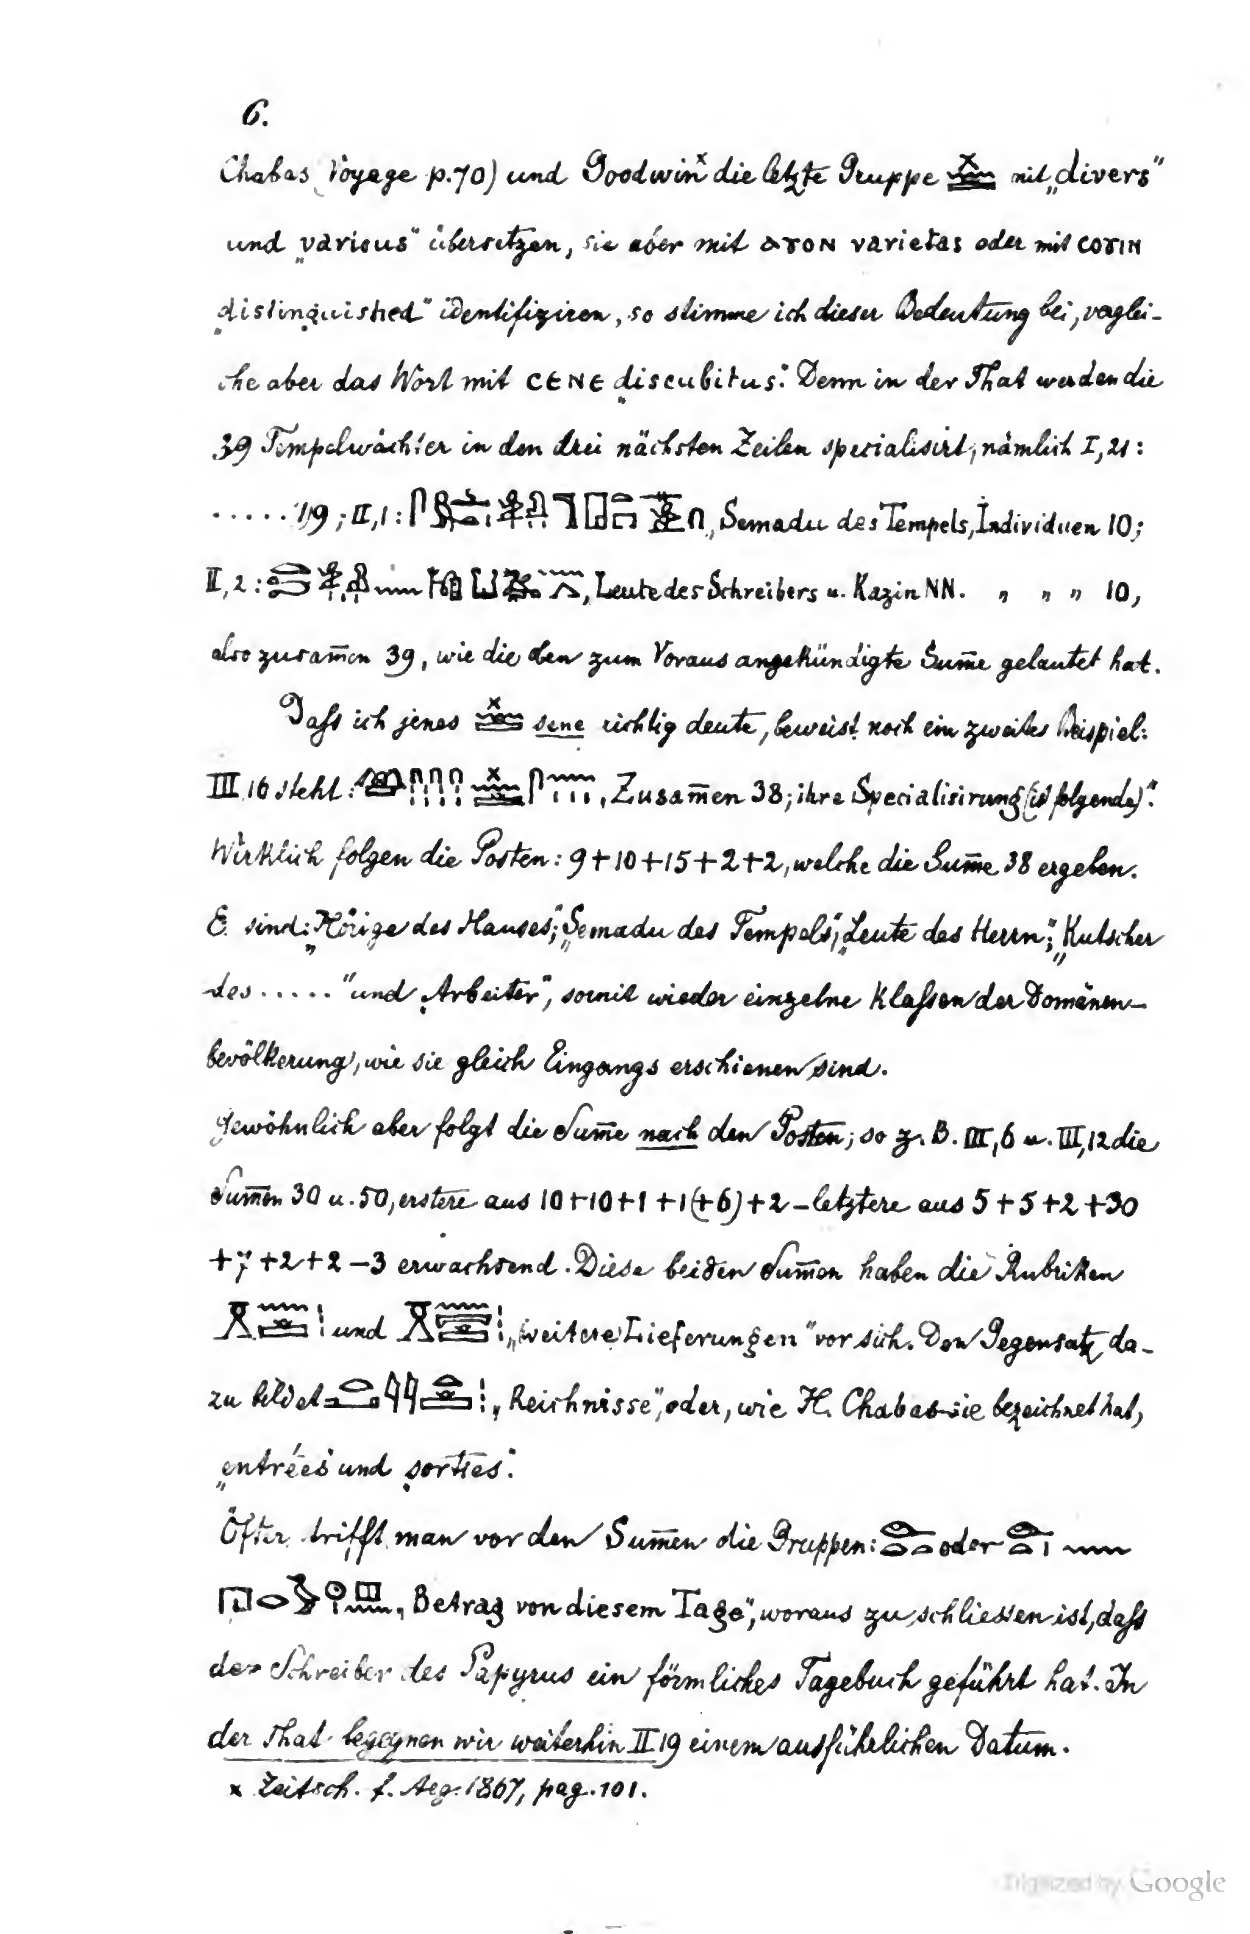 6.
Chabas (Voyage p. 70) und Goodwin x die letzte Gruppe mit „divers“
und „various“ übersetzen, sie aber mit ⲁⲩⲟⲛ varietas oder mit ⲥⲟⲩⲓⲛ
„distinguished“ identifiziren, so stimme ich dieser Bedeutung bei, verglei-
che aber das Wort mit ⲥⲉⲛⲉ „discubitus“. Denn in der That werden die
39 Tempelwächter in den drei nächsten Zeilen specialisirt, nämlich I, 21:
..... 19; II, 1: „Semadu des Tempels, Individuen 10;
II, 2: , Leute des Schreibers u. Kazin NN. „ „ „ 10,
also zusam̅en 39, wie die den zum Voraus angekündigte Sum̅e gelautet hat.
Daſs ich jenes sene richtig deute, beweist noch ein zweites Beispiel:
III 16 steht: „Zusam̅en 38; ihre Specialisirung (ist folgende)“.
Wirklich folgen die Posten: 9 + 10 + 15 + 2 + 2, welche die Sum̅e 38 ergeben.
E. sind: „Hörige des Hauses“; „Semadu des Tempels“; „Leute des Herrn“; „Kutscher
des ..... “ und „Arbeiter“, somit wieder einzelne Klaſsen der Domänen-
bevölkerung, wie sie gleich Eingangs erschienen sind.
Gewöhnlich aber folgt die Sum̅e nach den Posten; so z. B. III, 6 u. III, 12 die
Sum̅en 30 u. 50, erstere aus 10 + 10 + 1 + 1 (+ 6) + 2 – letztere aus 5 + 5 + 2 + 30
+ 7 + 2 + 2 – 3 erwachsend. Diese beiden Sum̅en haben die Rubriken
und „weitere Lieferungen“ vor sich. Den Gegensatz da-
zu bildet „Reichnisse“, oder, wie H. Chabas sie bezeichnet hat,
„entrées“ und „sorties“.
Öfter trifft man vor den Sum̅en die Gruppen: oder
„Betrag von diesem Tage“, woraus zu schliessen ist, daſs
der Schreiber des Papyrus ein förmliches Tagebuch geführt hat. In
der That begegnen wir weiterhin II 19 einem ausführlichen Datum.
x Zeitsch. f. Aeg. 1867, pag. 101.
Digitized by Google